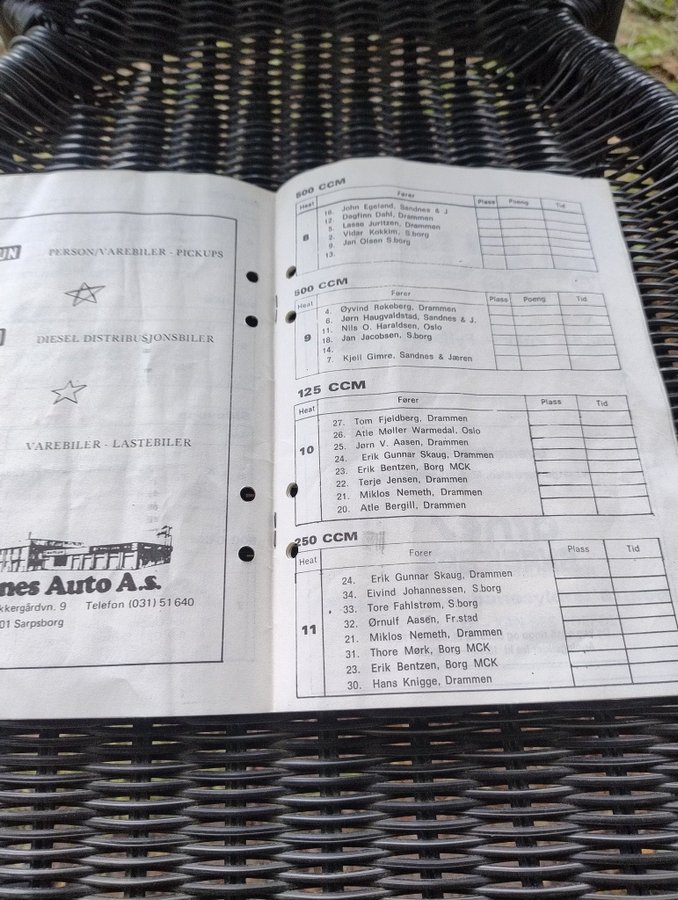 PERSON/VAREBILER - PICKUPS
DIESEL DISTRIBUSJONSBILER
VAREBILER - LASTEBILER
nes Auto A.s.
kkergårdvn. 9 Telefon (031) 51 640
01 Sarpsborg
500 CCM
Heat Fører Plass Poeng Tid
8
16. John Egeland, Sandnes & J
12. Dagfinn Dahl, Drammen
5. Lasse Juritzen, Drammen
2. Vidar Kokkim, S.borg
9. Jan Olsen S.borg
13.
500 CCM
Heat Fører Plass Poeng Tid
9
4. Øyvind Rekeberg, Drammen
6. Jørn Haugvaldstad, Sandnes & J.
11. Nils O. Haraldsen, Oslo
18. Jan Jacobsen, S.borg
14.
7. Kjell Gimre, Sandnes & Jæren
125 CCM
Heat Fører Plass Tid
10
27. Tom Fjeldberg, Drammen
26. Atle Møller Warmedal, Oslo
25. Jørn V. Aasen, Drammen
24. Erik Gunnar Skaug, Drammen
23. Erik Bentzen, Borg MCK
22. Terje Jensen, Drammen
21. Miklos Nemeth, Drammen
20. Atle Bergill, Drammen
250 CCM
Heat Fører Plass Tid
11
24. Erik Gunnar Skaug, Drammen
34. Eivind Johannessen, S.borg
33. Tore Fahlstrøm, S.borg
32. Ørnulf Aasen, Fr.stad
21. Miklos Nemeth, Drammen
31. Thore Mørk, Borg MCK
23. Erik Bentzen, Borg MCK
30. Hans Knigge, Drammen